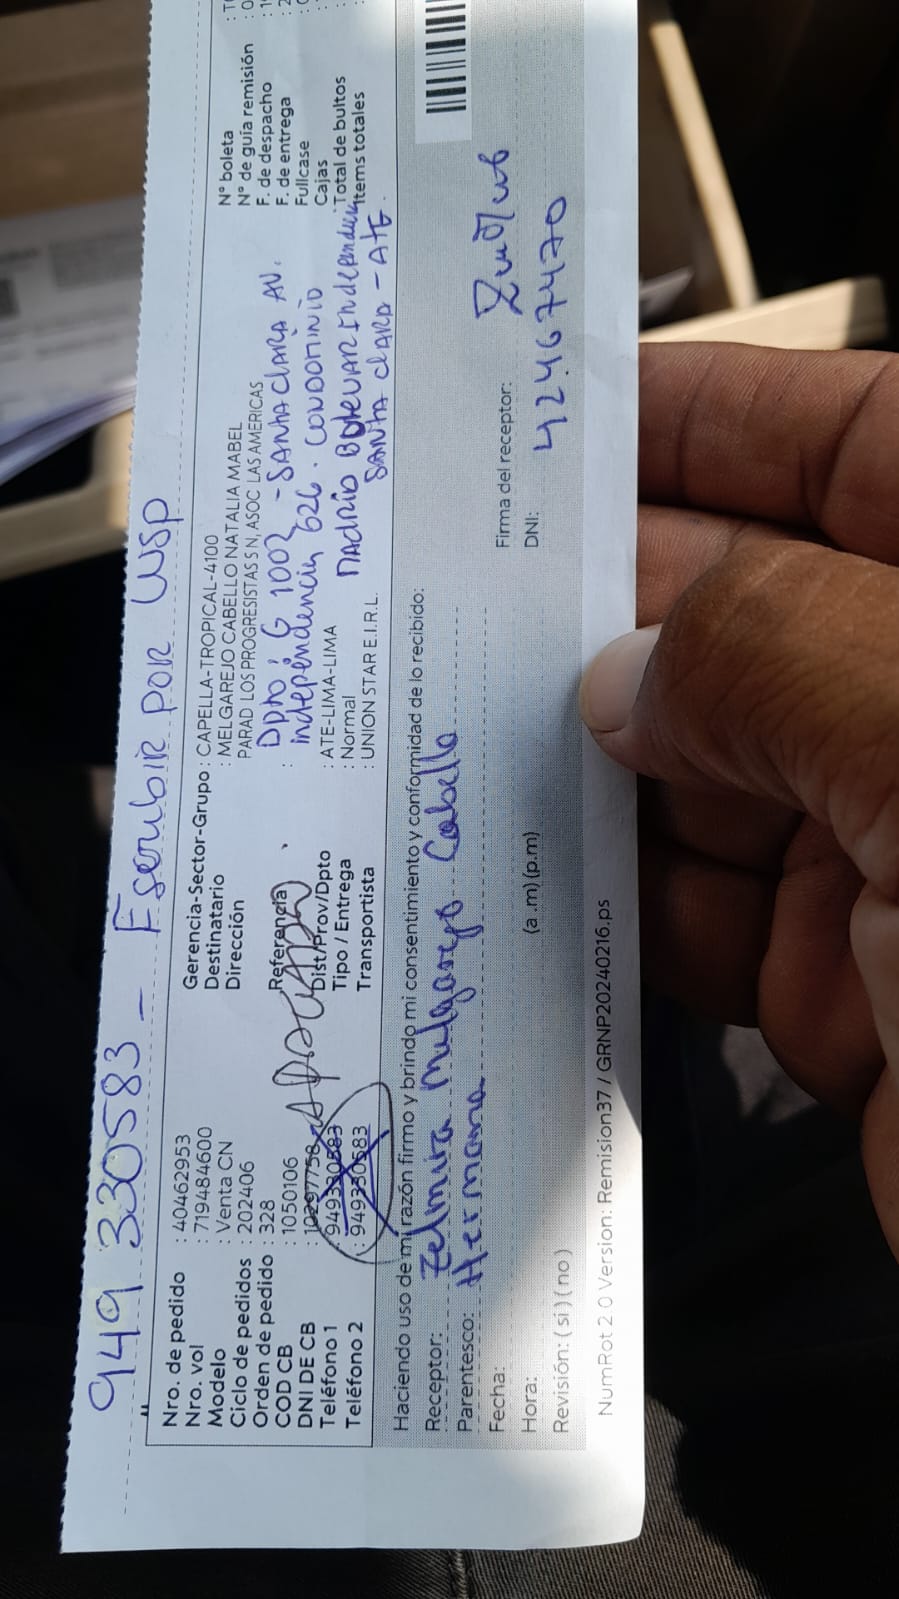 949 330583 - Escribir POR WSP
Nro. de pedido : 40462953
Nro. vol : 719484600
Modelo : Venta CN
Ciclo de pedidos : 202406
Orden de pedido : 328
COD CB : 1050106
DNI DE CB
Teléfono 1 : 949330583
Teléfono 2 : 949330583
APAGADO.
Gerencia-Sector-Grupo : CAPELLA-TROPICAL-4100
Destinatario : MELGAREJO CABELLO NATALIA MABEL
Dirección PARAD LOS PROGRESISTAS S N, ASOC LAS AMERICAS
Referencia :
Dist/Prov/Dpto : ATE-LIMA-LIMA
Tipo / Entrega : Normal
Transportista : UNION STAR E.I.R.L.
Dpto: G 1002 - SANTA CLARA AV.
independencia 626. CONDOMINIO
MADRID BOLEVAR Independencia
SANTA CLARA - ATE.
N° boleta
N° de guía remisión
F. de despacho
F. de entrega
Fullcase
Cajas
Total de bultos
Items totales
Haciendo uso de mi razón firmo y brindo mi consentimiento y conformidad de lo recibido:
Receptor: Zelmira Melgarejo Cabello
Parentesco: Hermana
Fecha:
Firma del receptor:
Hora: (a .m) (p.m)
DNI: 42467470
Revisión: ( si ) ( no )
NumRot 2.0 Version: Remision37 / GRNP20240216.ps